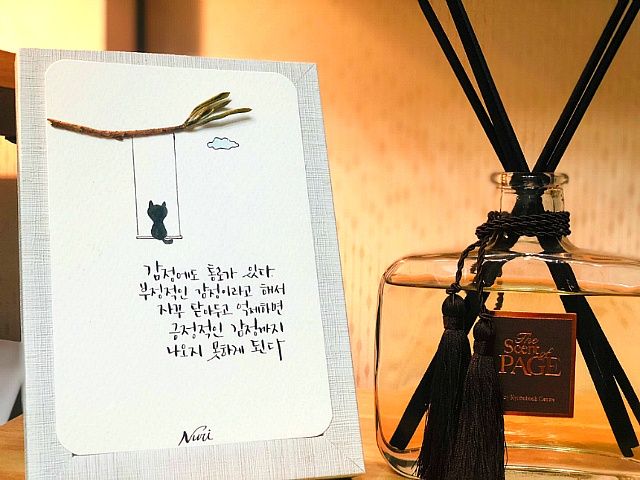 감정에도 통로가 있다
부정적인 감정이라고 해서
자꾸 닫아두고 억제하면
긍정적인 감정까지
나오지 못하게 된다
Nuri
The
Scent of
PAGE
by Kyobobook Centre